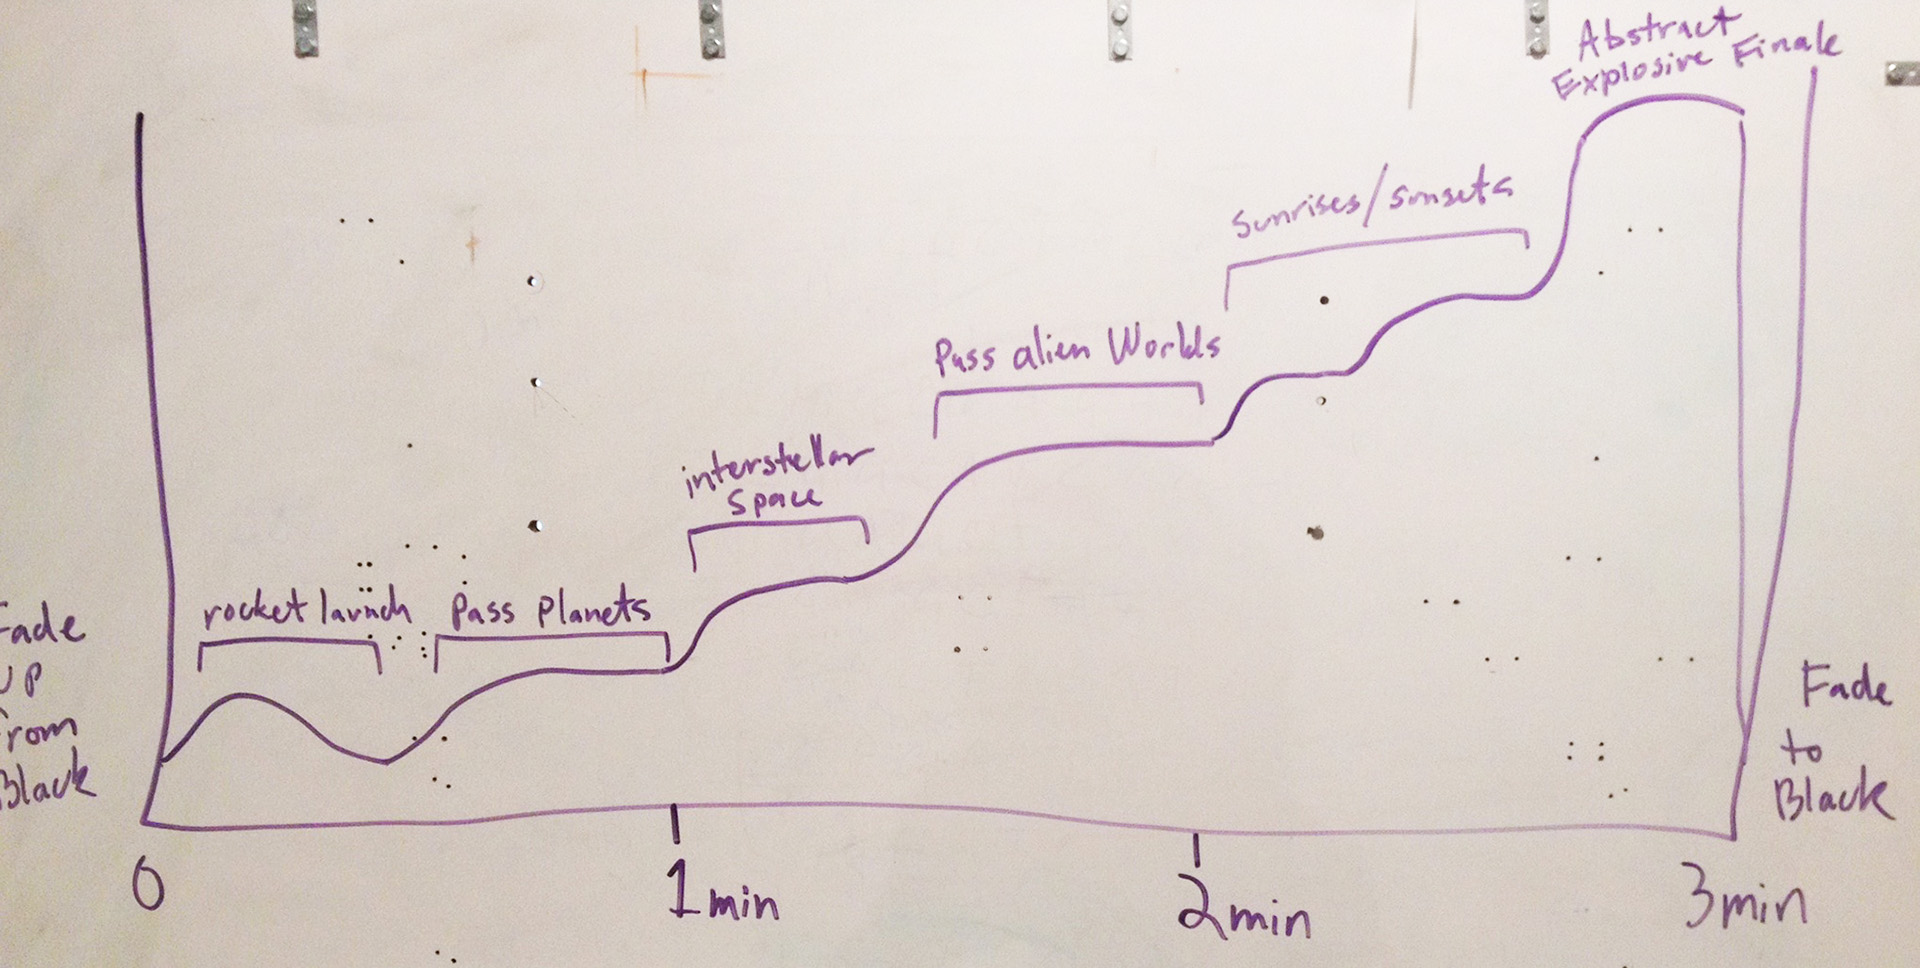 Abstract
Explosive Finale
Sunrises/Sunsets
Pass alien Worlds
interstellar
space
rocket launch
Pass Planets
Fade
up
From
Black
Fade
to
Black
0
1min
2min
3min